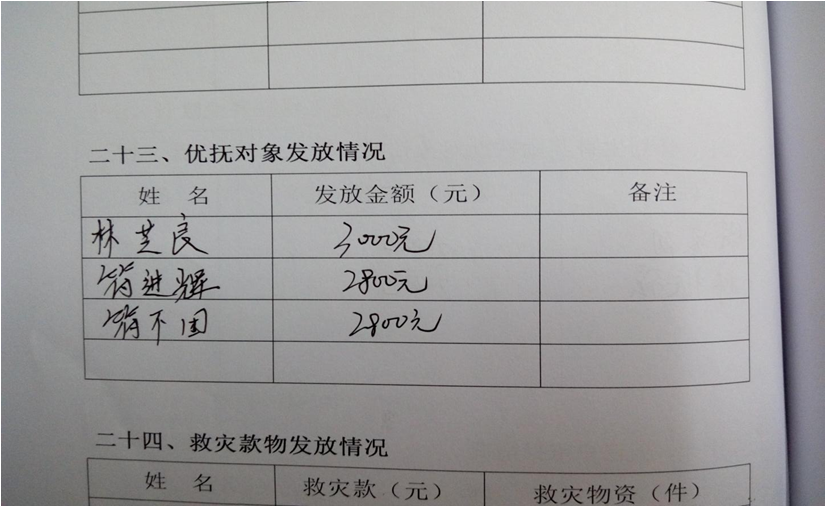 二十三、优抚对象发放情况
姓 名 发放金额（元） 备注
林芝良 3000元
进辉 2800元
2800元
二十四、救灾款物发放情况
姓 名 救灾款（元） 救灾物资（件）